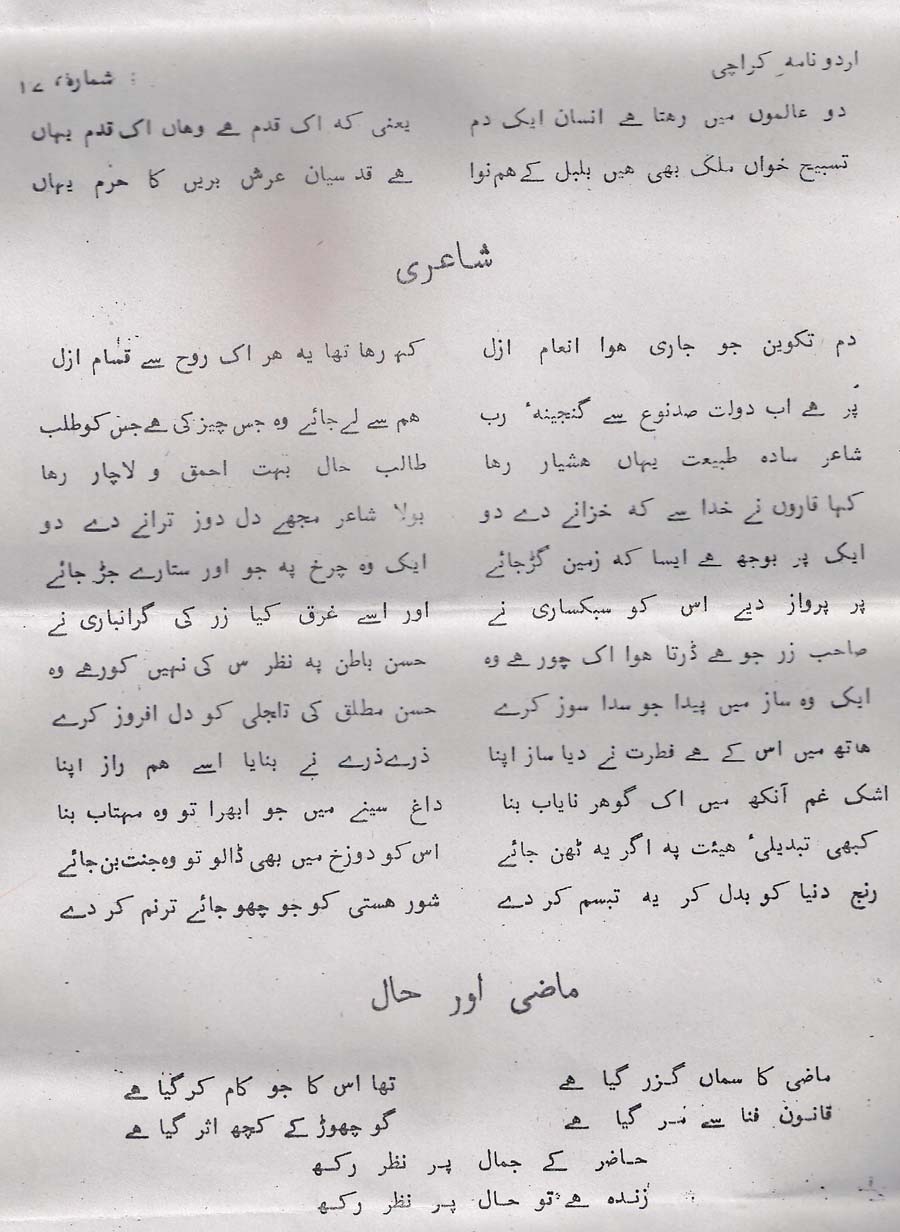 اردو نامہ کراچی شمارہ ۱۷
دو عالموں میں رھتا ھے انسان ایک دم یعنی کہ اک قدم ھے وھاں اک قدم یہاں
تسبیح خواں ملک بھی ھیں بلبل کے ھم نوا ھے قدسیان عرش بریں کا حرم یہاں
شاعری
دم تکوین جو جاری ھوا انعام ازل کہہ رھا تھا یہ ھر اک روح سے قسام ازل
پر ھے اب دولت صدنوع سے گنجینۂ رب ھم سے لے جائے وہ جس چیز کی ھے جس کو طلب
شاعر سادہ طبیعت یہاں ھشیار رھا طالب حال بہت احمق و لاچار رھا
کہا قاروں نے خدا سے کہ خزانے دے دو بولا شاعر مجھے دل دوز ترانے دے دو
ایک پر بوجھ ھے ایسا کہ زمین گڑجائے ایک وہ چرخ پہ جو اور ستارے جڑ جائے
پر پرواز دیے اس کو سبکساری نے اور اسے غرق کیا زر کی گرانباری نے
صاحب زر جو ھے ڈرتا ھوا اک چور ھے وہ حسن باطن پہ نظر س کی نہیں کورھے وہ
ایک وہ ساز میں پیدا جو سدا سوز کرے حسن مطلق کی تاجلی کو دل افروز کرے
ھاتھ میں اس کے ھے فطرت نے دیا ساز اپنا ذرے ذرے نے بنایا اسے ھم راز اپنا
اشک غم آنکھ میں اک گوھر نایاب بنا داغ سینے میں جو ابھرا تو وہ مہتاب بنا
کبھی تبدیلیٔ ھیئت پہ اگر یہ ٹھن جائے اس کو دوزخ میں بھی ڈالو تو وہ جنت بن جائے
رنج دنیا کو بدل کر یہ تبسم کر دے شور ھستی کو جو چھو جائے ترنم کر دے
ماضی اور حال
ماضی کا سماں گزر گیا ھے تھا اس کا جو کام کر گیا ھے
قانون فنا سے مر گیا ھے گو چھوڑ کے کچھ اثر گیا ھے
حاضر کے جمال پر نظر رکھ
زندہ ھے تو حال پر نظر رکھ